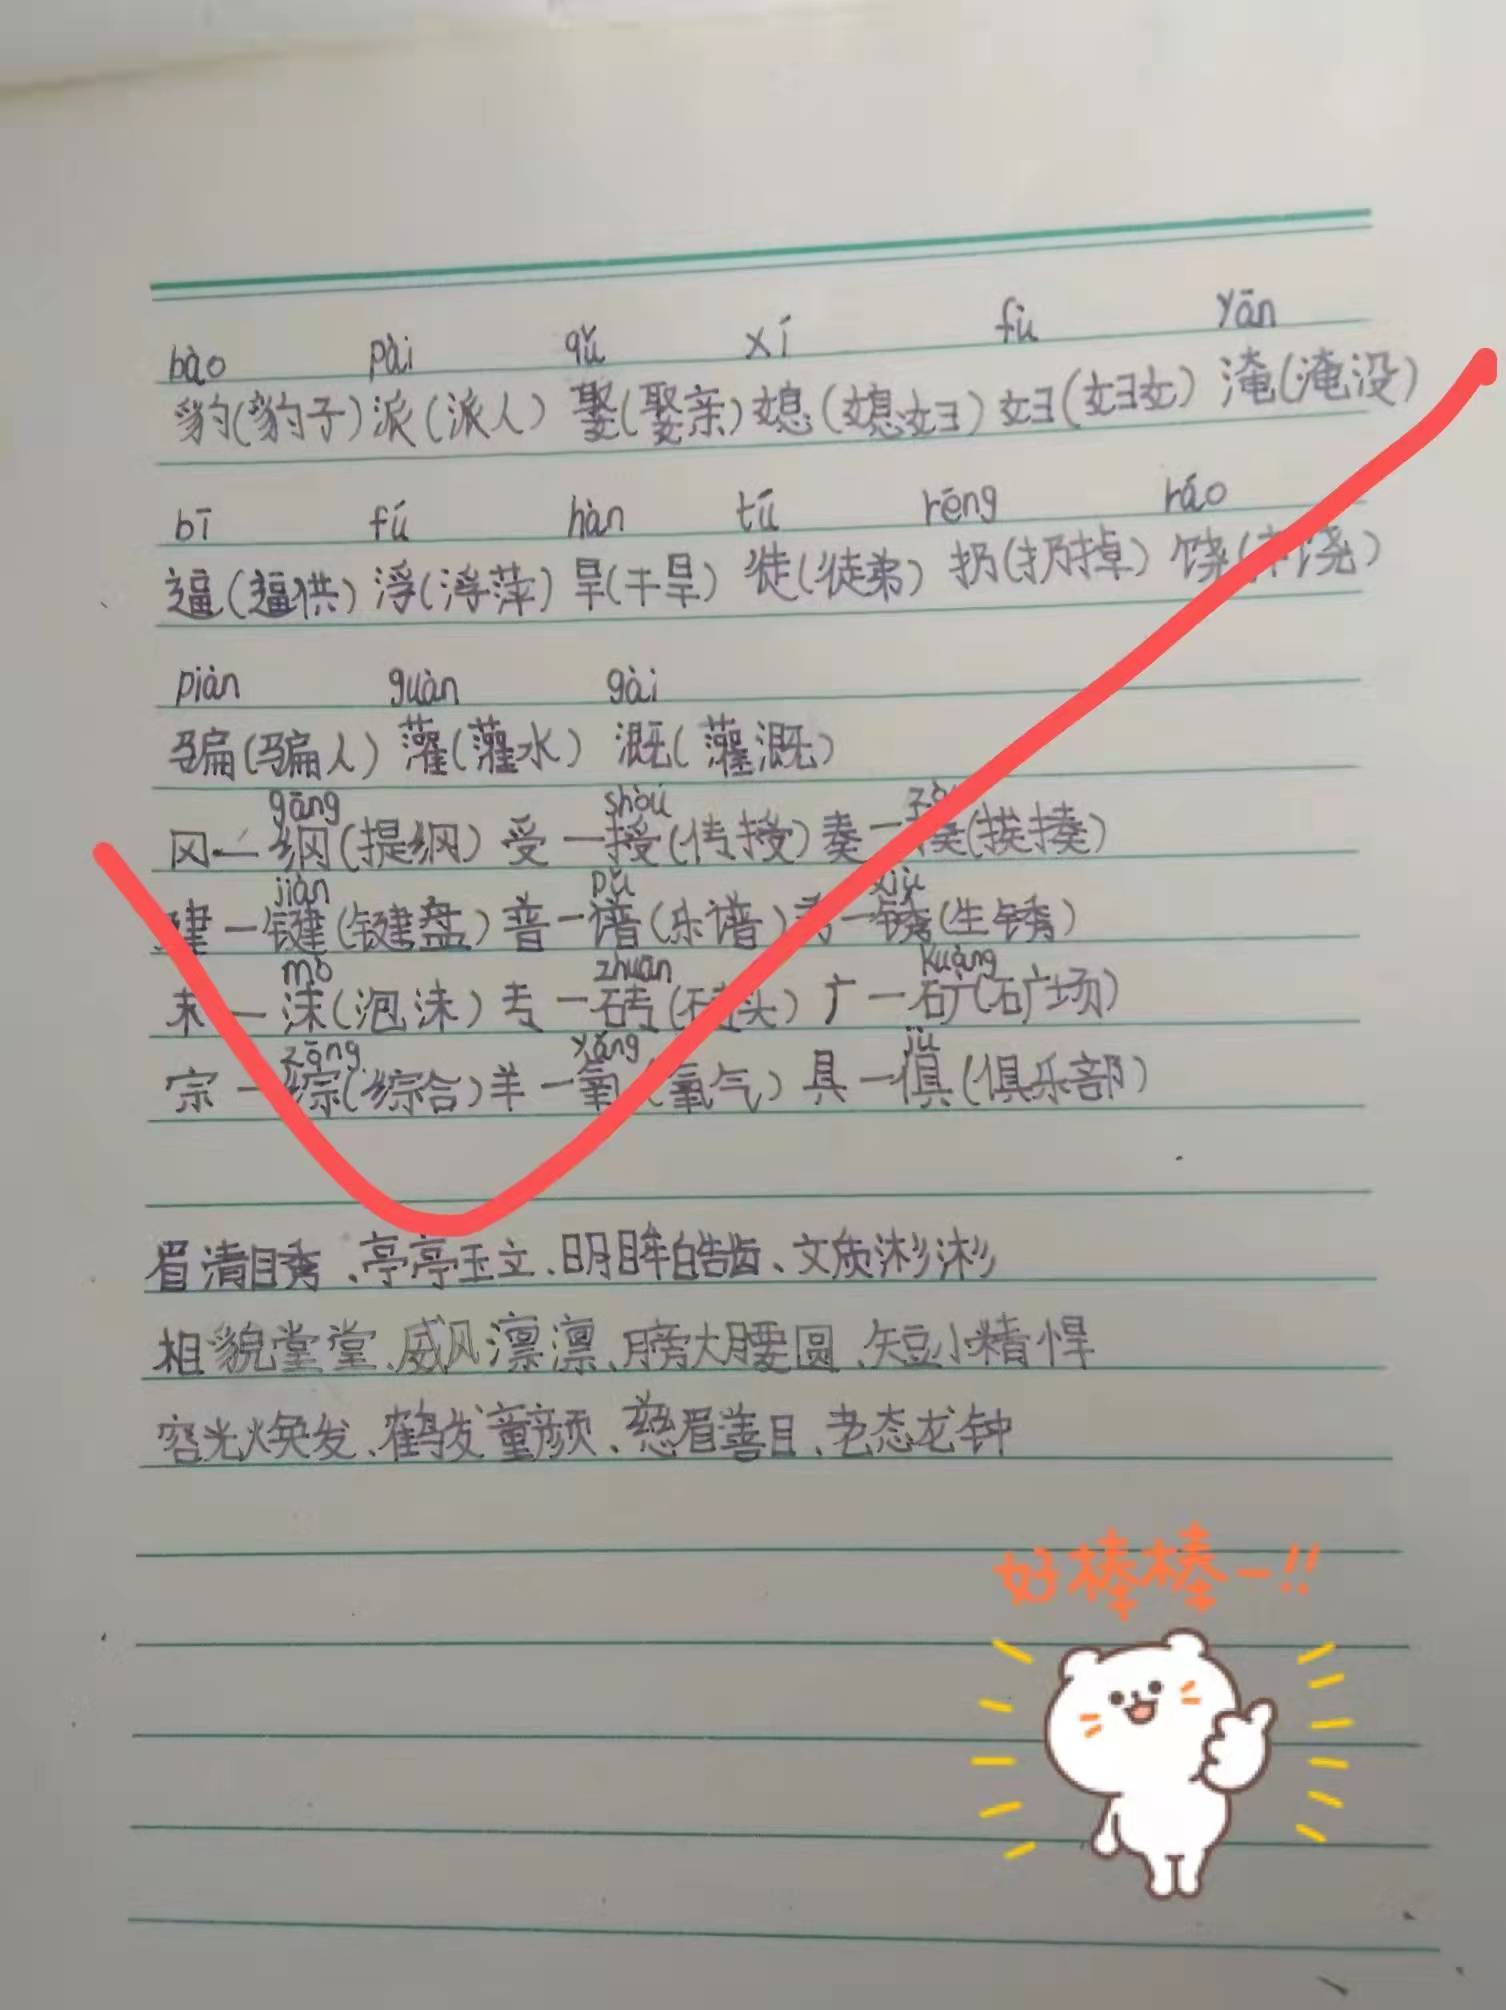 bào pài qǔ xí fù yān
豹(豹子)派(派人)娶(娶亲)媳(媳妇)妇(妇女)淹(淹没)
bī fú hàn tú rēng ráo
逼(逼供)浮(浮萍)旱(干旱)徒(徒弟)扔(扔掉)饶(饶)
piàn guàn gài
骗(骗人)灌(灌水)溉(灌溉)
gāng shòu
冈—纲(提纲)受—授(传授)奏—揍(挨揍)
jiàn pǔ xiù
建—键(键盘)普—谱(乐谱)秀—锈(生锈)
mò zhuān kuàng
末—沫(泡沫)专—砖(砖头)广—矿(矿场)
zōng yǎng jù
宗—综(综合)羊—氧(氧气)具—俱(俱乐部)
眉清目秀、亭亭玉立、明眸皓齿、文质彬彬
相貌堂堂、威风凛凛、膀大腰圆、短小精悍
容光焕发、鹤发童颜、慈眉善目、老态龙钟
好棒棒-!!